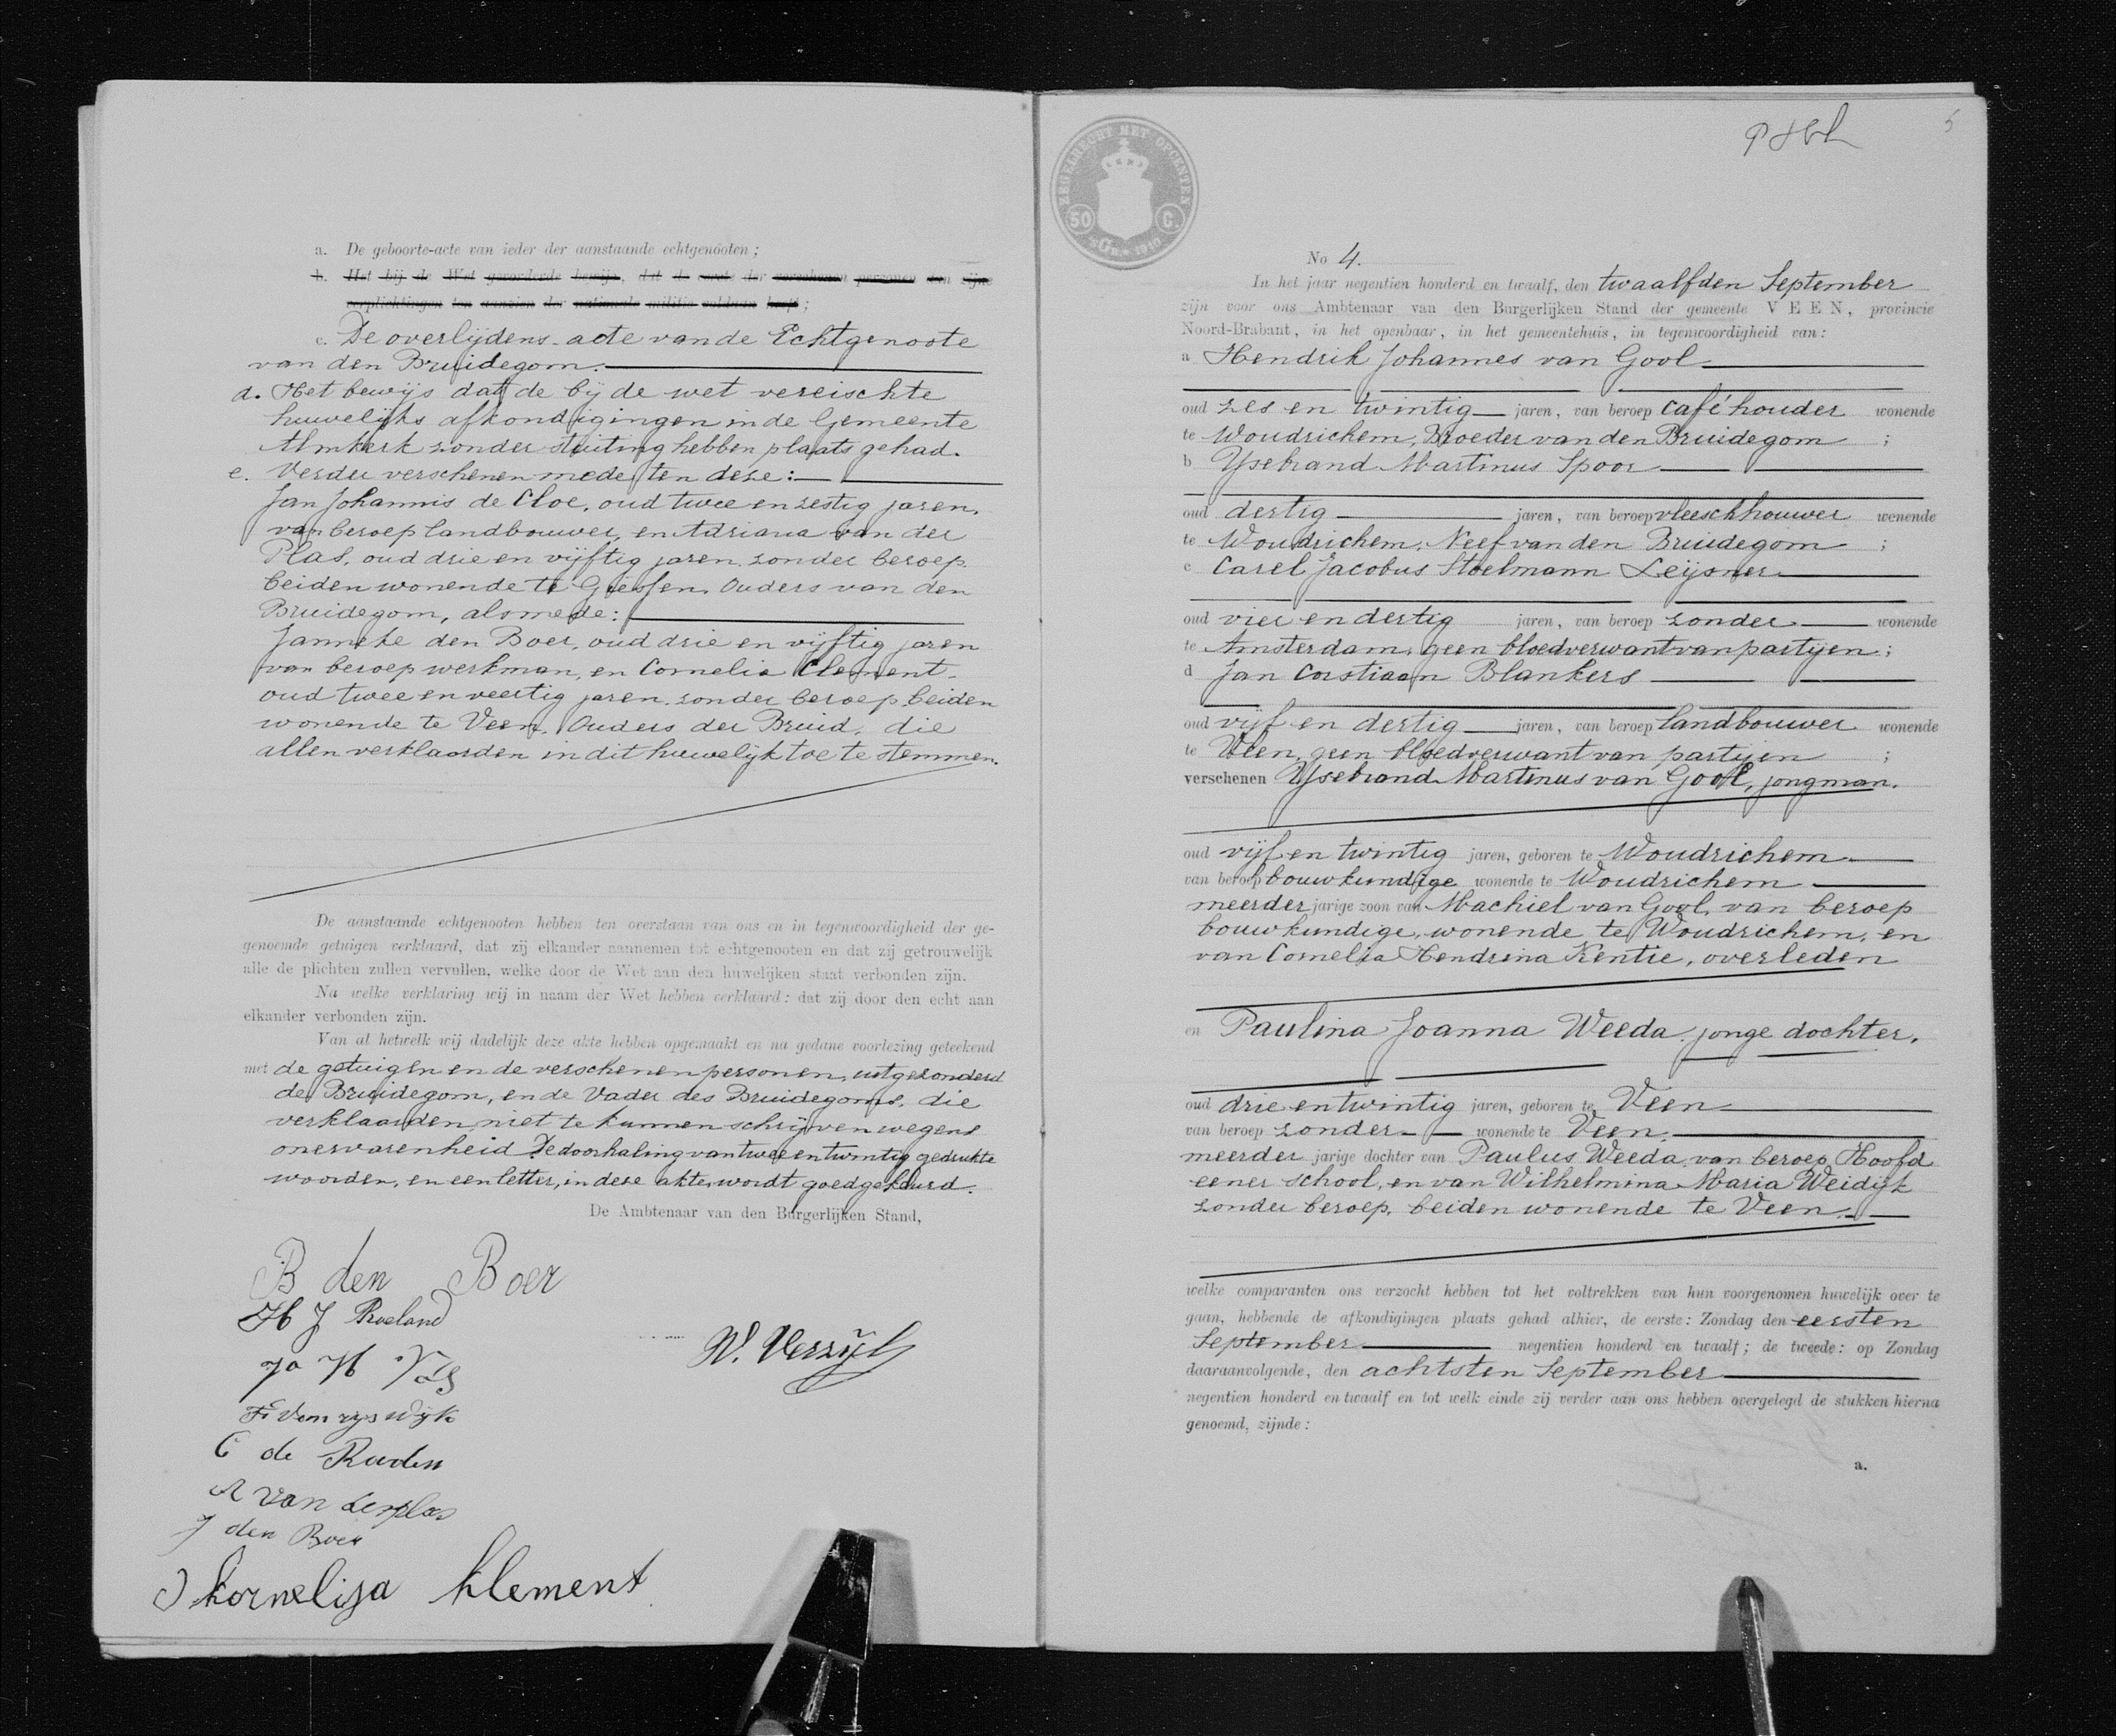 a. De geboorte-acte van ieder der aanstaande echtgenooten;
b. Het bij de Wet gevorderde bewijs, dat de eerste der verschenen personen aan zijne
verplichtingen ten aanzien der nationale militie voldaan heeft;
c. De overlijdens-acte van de Echtgenoote
van den Bruidegom.
d. Het bewijs dat de bij de wet vereischte
huwelijks afkondigingen in de Gemeente
Almkerk zonder stuiting hebben plaats gehad.
e. Verder verschenen mede ten deze:
Jan Johannis de Cloe, oud twee en zestig jaren,
van beroep landbouwer, en Adriana van der
Plas, oud drie en vijftig jaren, zonder beroep.
beiden wonende te Giessen, Ouders van den
Bruidegom, alsmede:
Janneke den Boer, oud drie en vijftig jaren
van beroep werkman, en Cornelia Clement
oud twee en veertig jaren, zonder beroep, beiden
wonende te Veen, Ouders der Bruid, die
allen verklaarden in dit huwelijk toe te stemmen.
De aanstaande echtgenooten hebben ten overstaan van ons en in tegenwoordigheid der ge-
genoemde getuigen verklaard, dat zij elkander aannemen tot echtgenooten en dat zij getrouwelijk
alle de plichten zullen vervullen, welke door de Wet aan den huwelijken staat verbonden zijn.
Na welke verklaring wij in naam der Wet hebben verklaard: dat zij door den echt aan
elkander verbonden zijn.
Van al hetwelk wij dadelijk deze akte hebben opgemaakt en na gedane voorlezing geteekend
met de getuigen en de verschenen personen, uitgezonderd
de Bruidegom, en de Vader des Bruidegoms, die
verklaarden niet te kunnen schrijven wegens
onervarenheid De doorhaling van twee en twintig gedrukte
woorden, en een letter, in deze akte, wordt goedgekeurd.
De Ambtenaar van den Burgerlijken Stand,
B den Boer
H J Roeland
W. Verzijl
F Van rijswijk
C de Ruden
A van derplas
J den Boer
kornelija klement
5
ZEGELRECHT MET OPCENTEN
50 C.
No 4.
In het jaar negentien honderd en twaalf, den twaalfden September
zijn voor ons Ambtenaar van den Burgerlijken Stand der gemeente VEEN, provincie
Noord-Brabant, in het openbaar, in het gemeentehuis, in tegenwoordigheid van:
a Hendrik Johannes van Gool
oud zes en twintig jaren, van beroep caféhouder wonende
te Woudrichem, Broeder van den Bruidegom ;
b IJsebrand Martinus Spoor
oud dertig jaren, van beroep vleeschhouwer wonende
te Woudrichem, Neef van den Bruidegom ;
c Carel Jacobus Stoelmann Leijsner
oud vier en dertig jaren, van beroep zonder wonende
te Amsterdam, geen bloedverwant van partijen;
d Jan Corstiaan Blankers
oud vijf en dertig jaren, van beroep landbouwer wonende
te Veen, geen bloedverwant van partijen ;
verschenen IJsebrand Martinus van Gool, jongman.
oud vijf en twintig jaren, geboren te Woudrichem
van beroep bouwkundige wonende te Woudrichem
meerder jarige zoon van Machiel van Gool, van beroep
bouwkundige, wonende te Woudrichem, en
van Cornelia Hendrina Kentie, overleden
en Paulina Joanna Weeda, jonge dochter.
oud drie en twintig jaren, geboren te Veen
van beroep zonder wonende te Veen.
meerder jarige dochter van Paulus Weeda, van beroep Hoofd
eener school, en van Wilhelmina Maria Weidijk
zonder beroep, beiden wonende te Veen.
welke comparanten ons verzocht hebben tot het voltrekken van hun voorgenomen huwelijk over te
gaan, hebbende de afkondigingen plaats gehad alhier, de eerste: Zondag den eersten
September negentien honderd en twaalf; de tweede: op Zondag
daaraanvolgende, den achtsten September
negentien honderd en twaalf en tot welk einde zij verder aan ons hebben overgelegd de stukken hierna
genoemd, zijnde:
a.